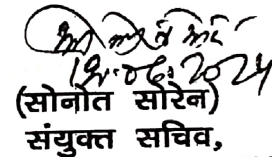 18.06.2024
(सोनोत सोरेन)
संयुक्त सचिव,